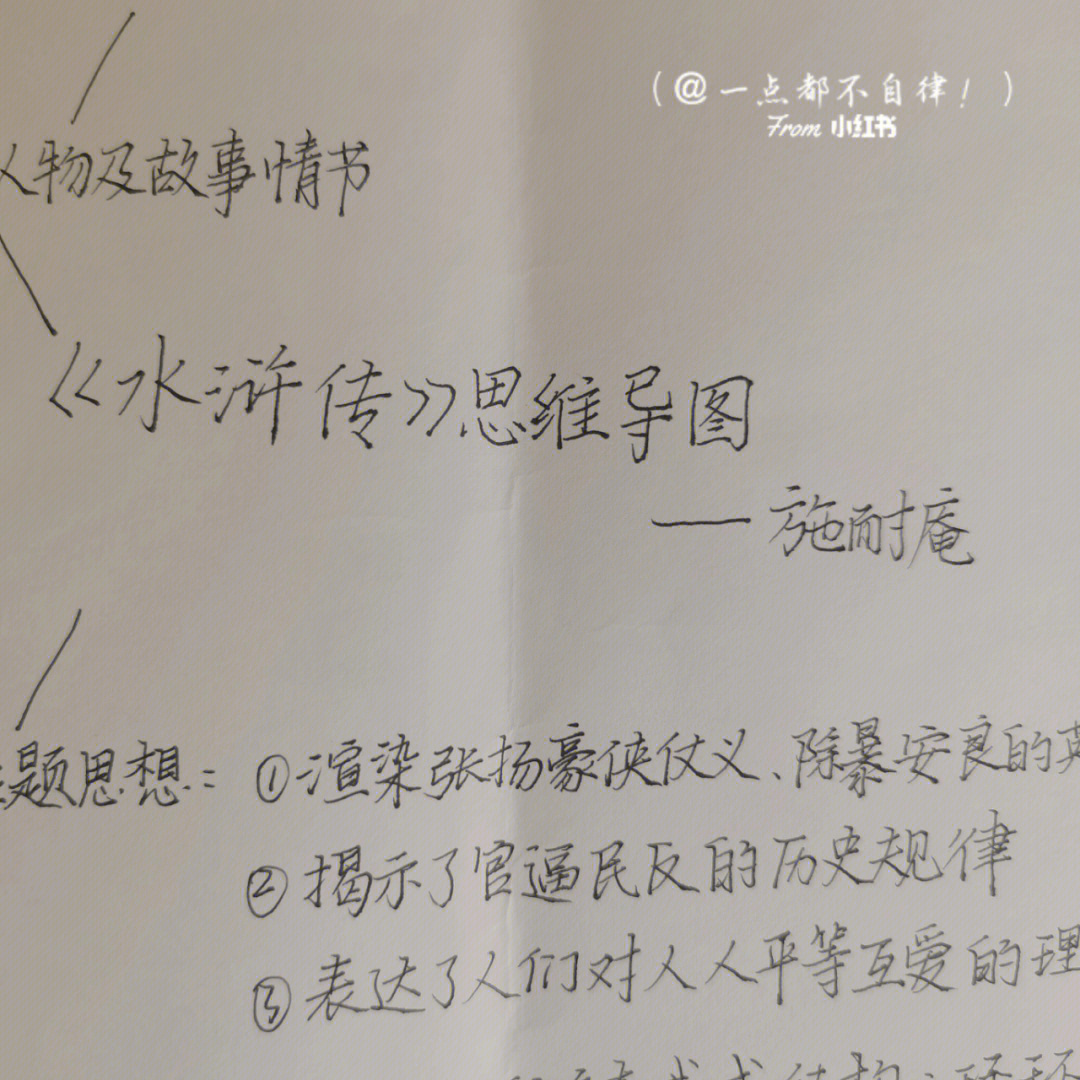 (@一点都不自律！)
From 小红书
人物及故事情节
《水浒传》思维导图
——施耐庵
主题思想：①渲染张扬豪侠仗义、除暴安良的英
②揭示了官逼民反的历史规律
③表达了人们对人人平等互爱的理